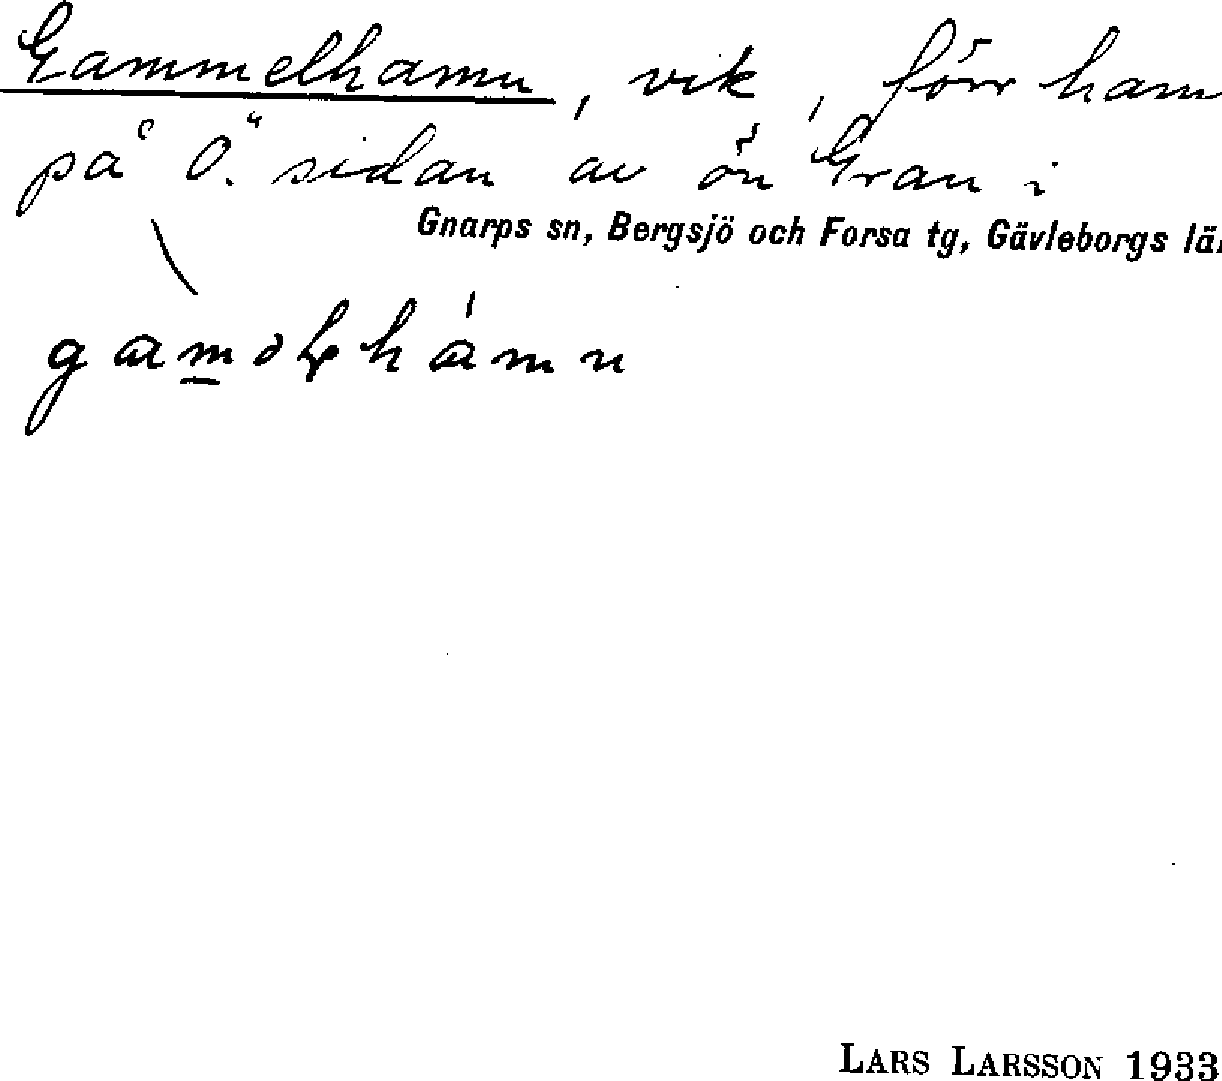 Gammelhamn, vik, förr hamn
på Ö. sidan av ön Gran i
Gnarps sn, Bergsjö och Forsa tg, Gävleborgs lä
LARS LARSSON 1933